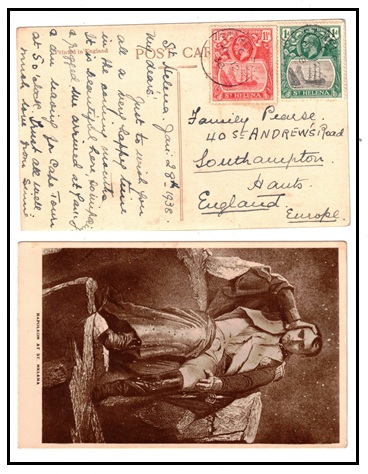 Printed in England
POST CARD
1½d
ST HELENA
½d
ST HELENA
St Helena. Jan: 28th 1938.
My dears.
Just to wish you
all a very happy time
in the coming months.
It is beautiful here,
a we arrived at
a am leaving for Cape Town
at 5 o'clock. Trust all well.
much love from
Family Pearse.
40 St ANDREWS Road
Southampton.
Hants.
England.
Europe.
NAPOLEON AT ST. HELENA